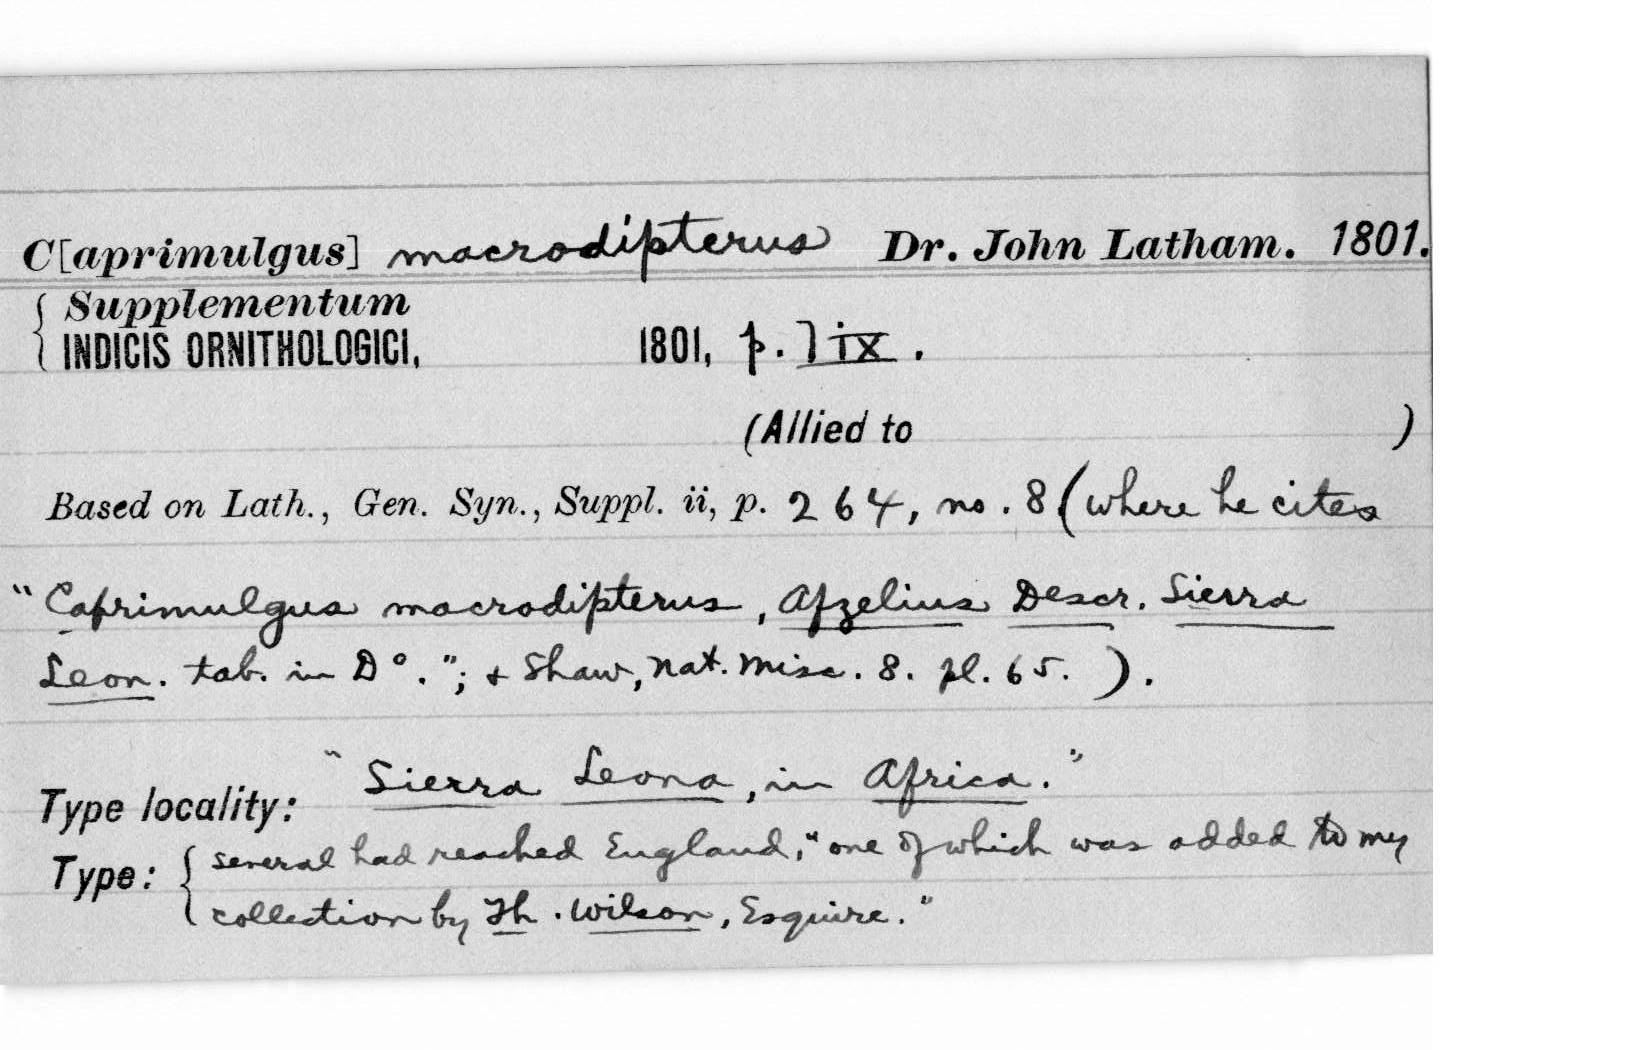 C[aprimulgus] macrodipterus Dr. John Latham. 1801.
{ Supplementum
INDICIS ORNITHOLOGICI, 1801, p. lix.
(Allied to )
Based on Lath., Gen. Syn., Suppl. ii, p. 264, no. 8 (where he cites
"Caprimulgus macrodipterus, Afzelius Descr. Sierra
Leon. tab. in D°."; + Shaw, Nat. Misc. 8. pl. 65. ).
Type locality: "Sierra Leona, in Africa."
Type: { several had reached England, "one of which was added to my
collection by Th. Wilson, Esquire."